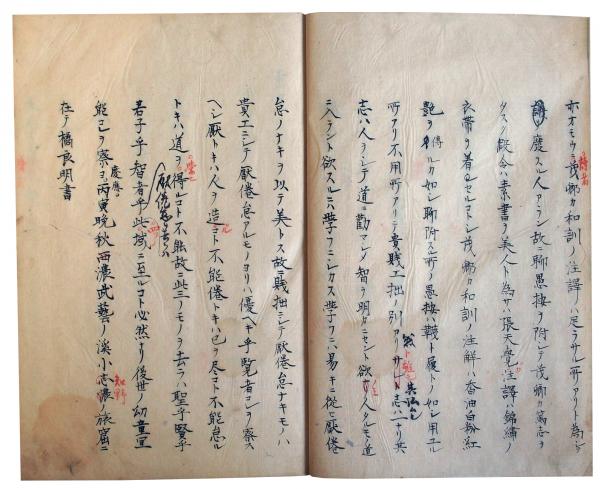 亦オモウニ茂卿カ和訓ノ注譯ハ足ラサル所アリト為シテ
慶スル人アラン故ニ聊愚按ヲ附シテ茂卿カ篤志ヲ
タスク縱令ハ素書ヲ美人ト為サハ張天覺注譯ハ錦繡ノ
衣帯ヲ着セルコトシ茂卿カ和訓ノ注解ハ香油白粉紅
艶ヲ得ルカ如シ聊附スル所ノ愚按ハ韈ト履トノ如シ用ユル
所アリ不用所アリテ貴賤工拙ノ別アリ志ハ一ナリ共
志ハ人ヲシテ道ニ勸マシメ智ヲ明カニセント欲ス人タルモノ道
ニ入ラント欲スルニハ学フニシカス学フニハ易キニ從ヒ厭倦
怠ノナキヲ以テ美トス故ニ賤拙ニシテ厭倦怠ナキモノハ
貴工ニシテ厭倦怠アルモノヨリハ優ヘキ乎覧者コレヲ察ス
ヘシ厭トキハ人ヲ造コト不能倦トキハ己ヲ尽コト不能怠ル
トキハ道ヲ得ルコト不能故ニ此三ノモノヲ去ラハ聖乎賢乎
君子乎智者乎此域ニ至ルコト必然リ後世ノ幼童宜
能コレヲ察ヨ慶應丙寅晩秋西濃武藝ノ溪小志濃ノ旅窟ニ
在テ橘良明書